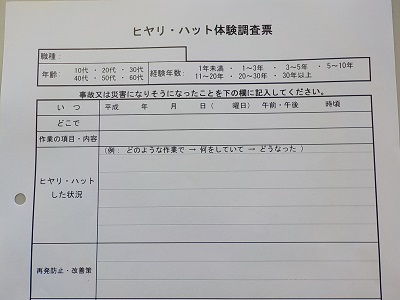 ヒヤリ・ハット体験調査票
職種：
年齢： 10代 ・ 20代 ・ 30代
40代 ・ 50代 ・ 60代
経験年数： 1年未満 ・ 1～3年 ・ 3～5年 ・ 5～10年
11～20年 ・ 20～30年 ・ 30年以上
事故又は災害になりそうになったことを下の欄に記入してください。
い つ 平成 年 月 日（ 曜日） 午前・午後 時頃
どこで
作業の項目・内容
（例： どのような作業で → 何をしていて → どうなった ）
ヒヤリ・ハット
した状況
再発防止・改善策